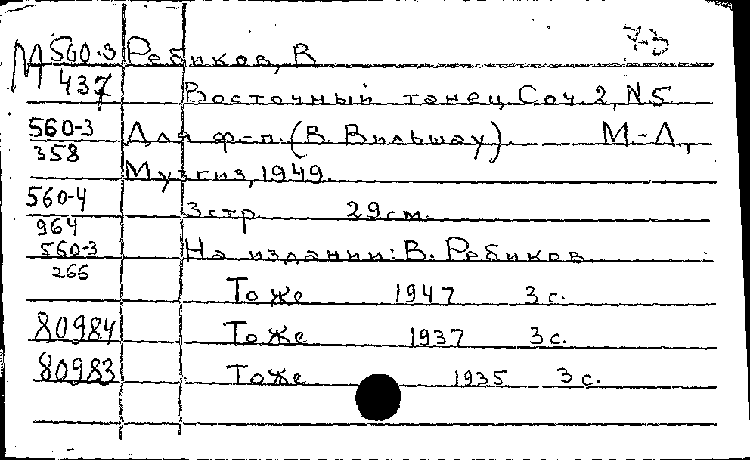 73
М 560-3 Ребиков, В
437 Восточный танец. Соч. 2, N5
560-3 Для ф-п. (В. Вильшау). М.-Л.,
358 Музгиз, 1949.
560-4 3 стр. 29 см.
964
560-3 На издании: В. Ребиков
266
То же 1947 3 с.
80984 То же 1937 3 с.
80983 То же 1935 3 с.